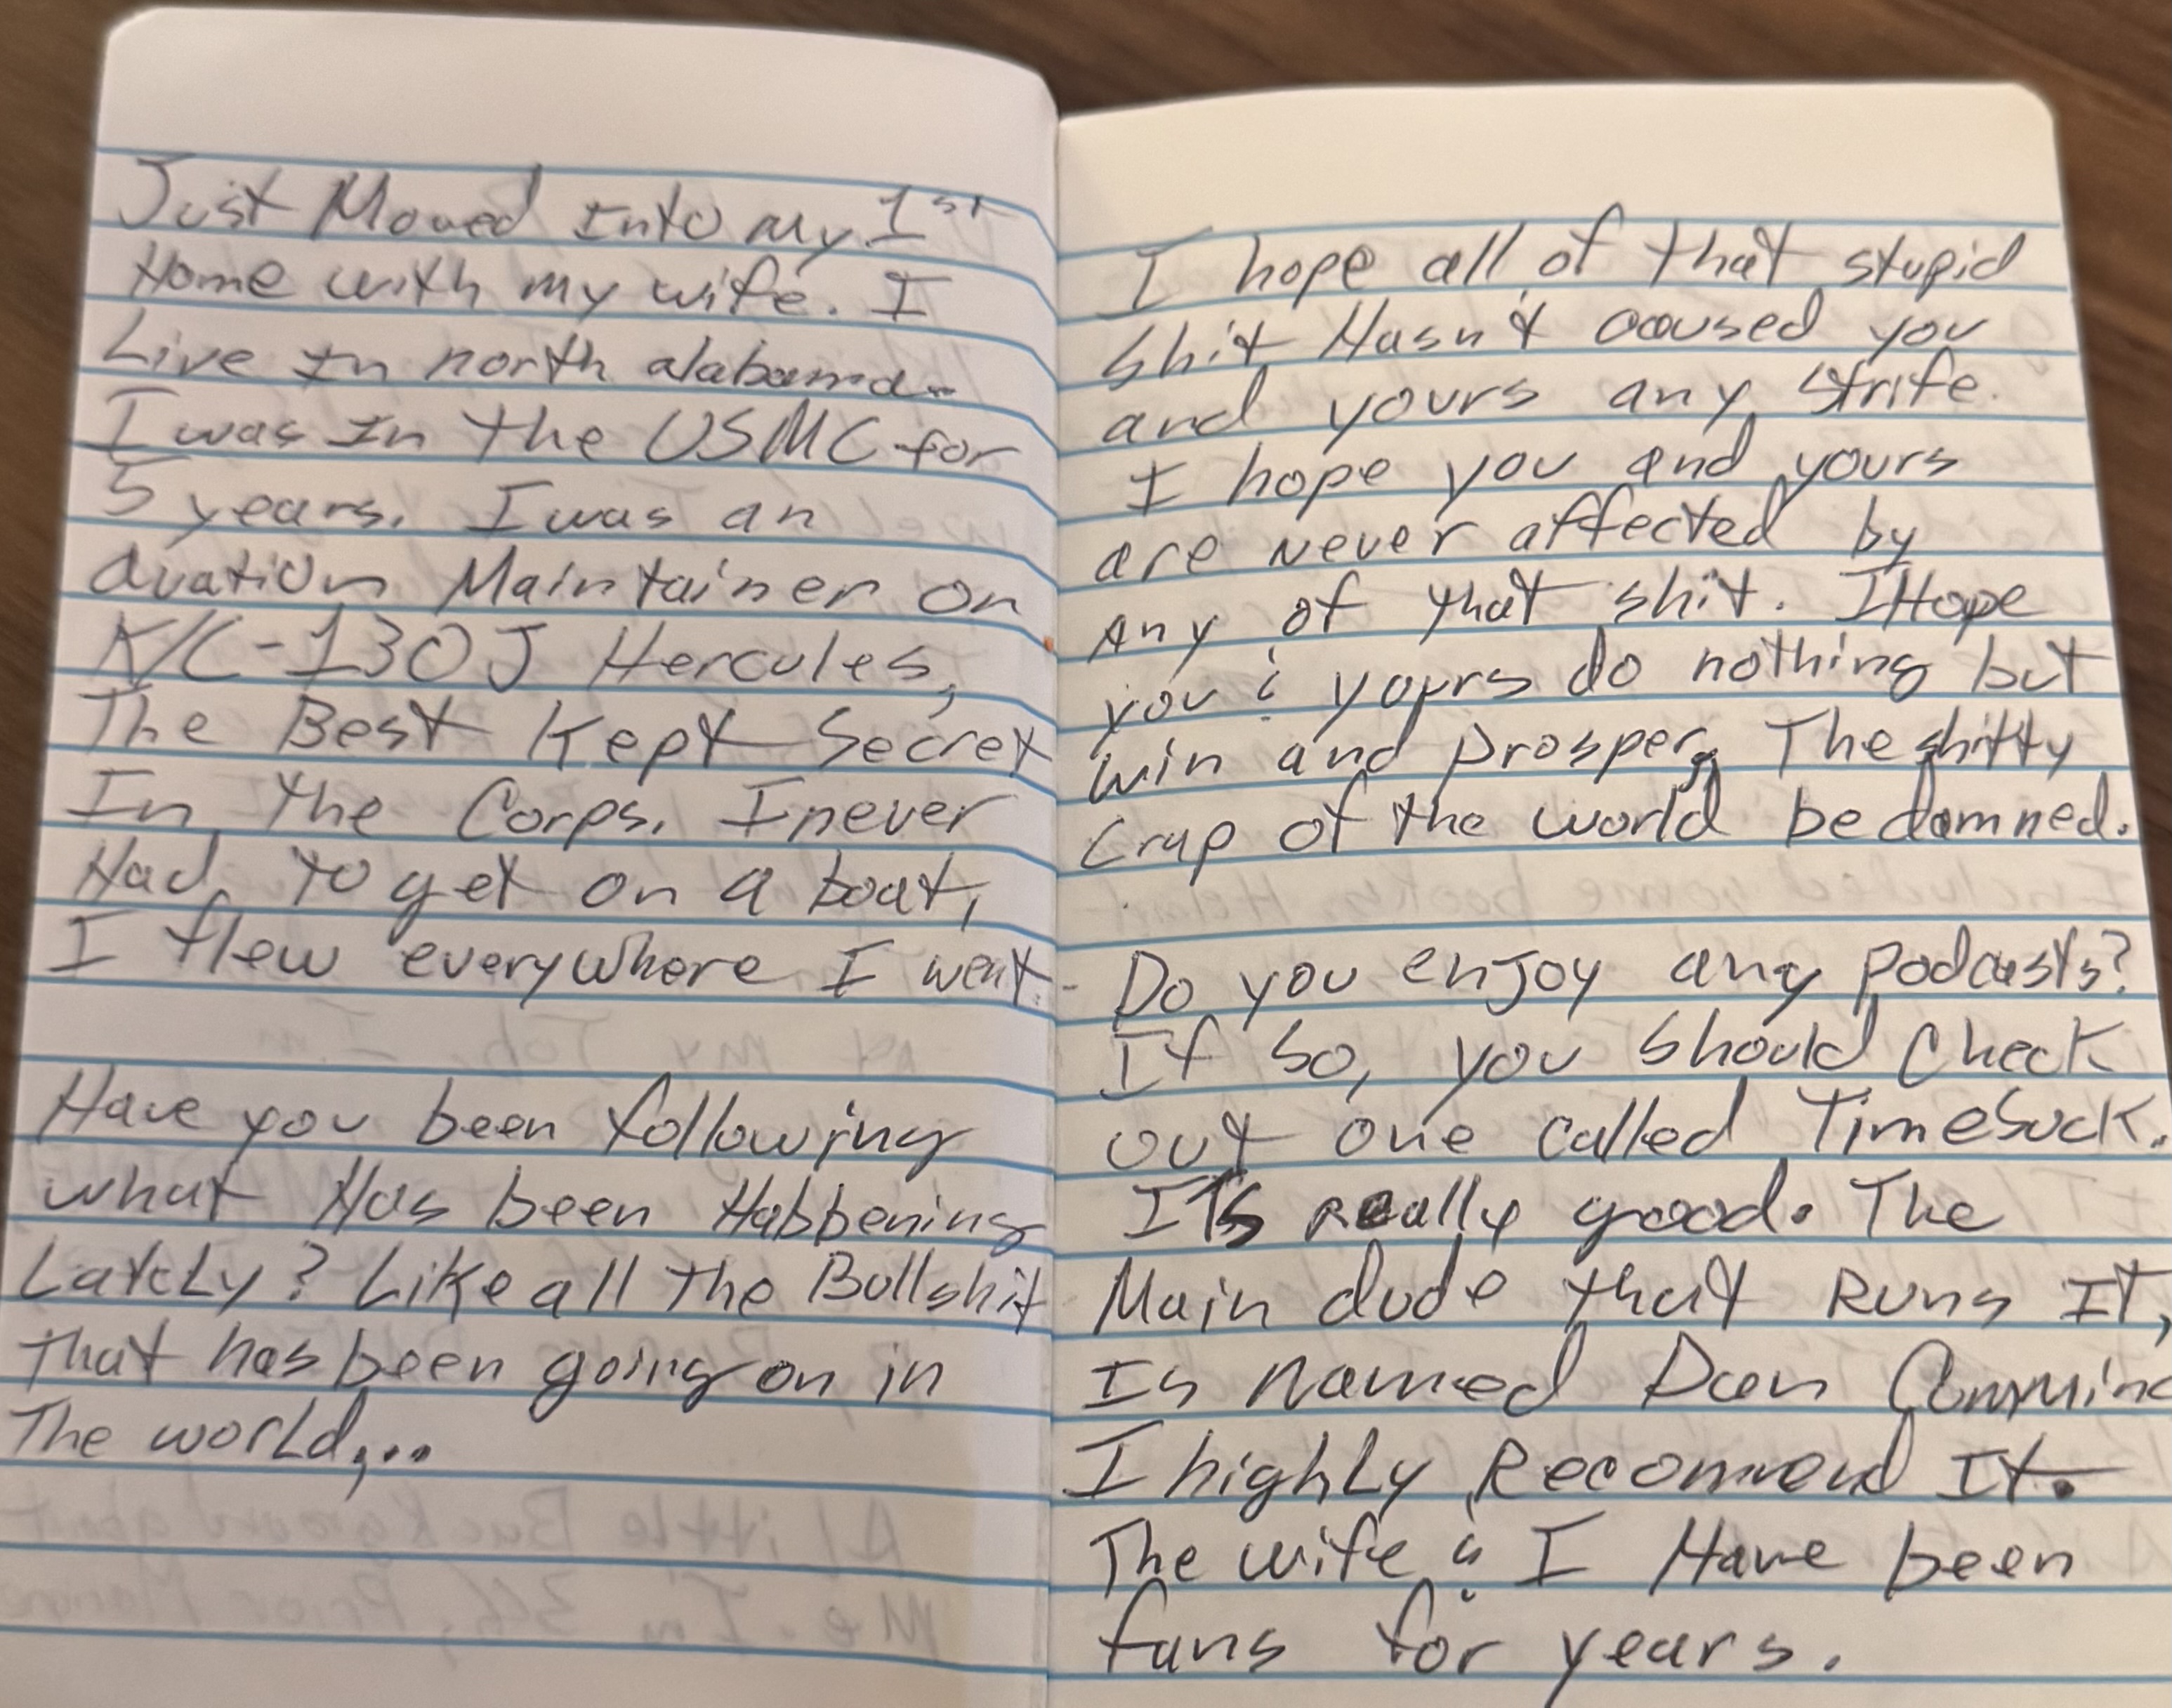 Just Moved Into my 1st
Home with my wife. I
Live In north alabama.
I was In the USMC for
5 years. I was an
avation Maintainer on
K/C-130J Hercules,
The Best Kept Secret
In the Corps. I never
Had to get on a boat,
I flew everywhere I went.
Have you been following
what Has been Habbening
Lately? Like all the Bullshit
That has been going on in
The world,...
I hope all of that stupid
shit Hasn't caused you
and yours any strife.
I hope you and yours
are never affected by
Any of that shit. I Hope
you & yours do nothing but
win and prosper. The shitty
Crap of the world be damned.
Do you enjoy any podcasts?
If so, you should Check
out one called TimeSuck.
ITS really good. The
Main dude that Runs IT,
Is named Dan Cummin
I highly Recommend It.
The wife & I Have been
fans for years.